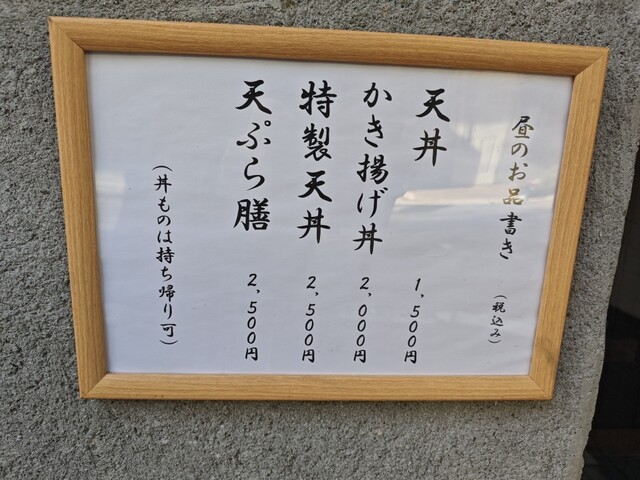 昼のお品書き
(税込み)
天丼 1,500円
かき揚げ丼 2,000円
特製天丼 2,500円
天ぷら膳 2,500円
(丼ものは持ち帰り可)